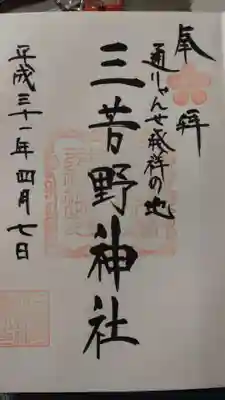 奉拝
通りゃんせ発祥の地
三芳野神社
平成三十一年四月七日